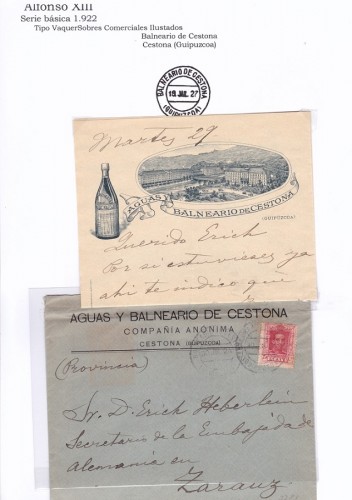 Alfonso XIII
Serie básica 1.922
Tipo VaquerSobres Comerciales Ilustados
Balneario de Cestona
Cestona (Guipuzcoa)
BALNEARIO DE CESTONA
19 JUL. 27
(GUIPUZCOA)
Martes 29
AGUAS Y BALNEARIO DE CESTONA
(GUIPUZCOA)
Querido Erich
Por si estuvieses ya
ahi te indico que
AGUAS Y BALNEARIO DE CESTONA
COMPAÑIA ANÓNIMA
CESTONA (GUIPUZCOA)
(Provincia)
Sr. D. Erich Heberlein
Secretario de la Embajada de
Alemania en
Zarauz